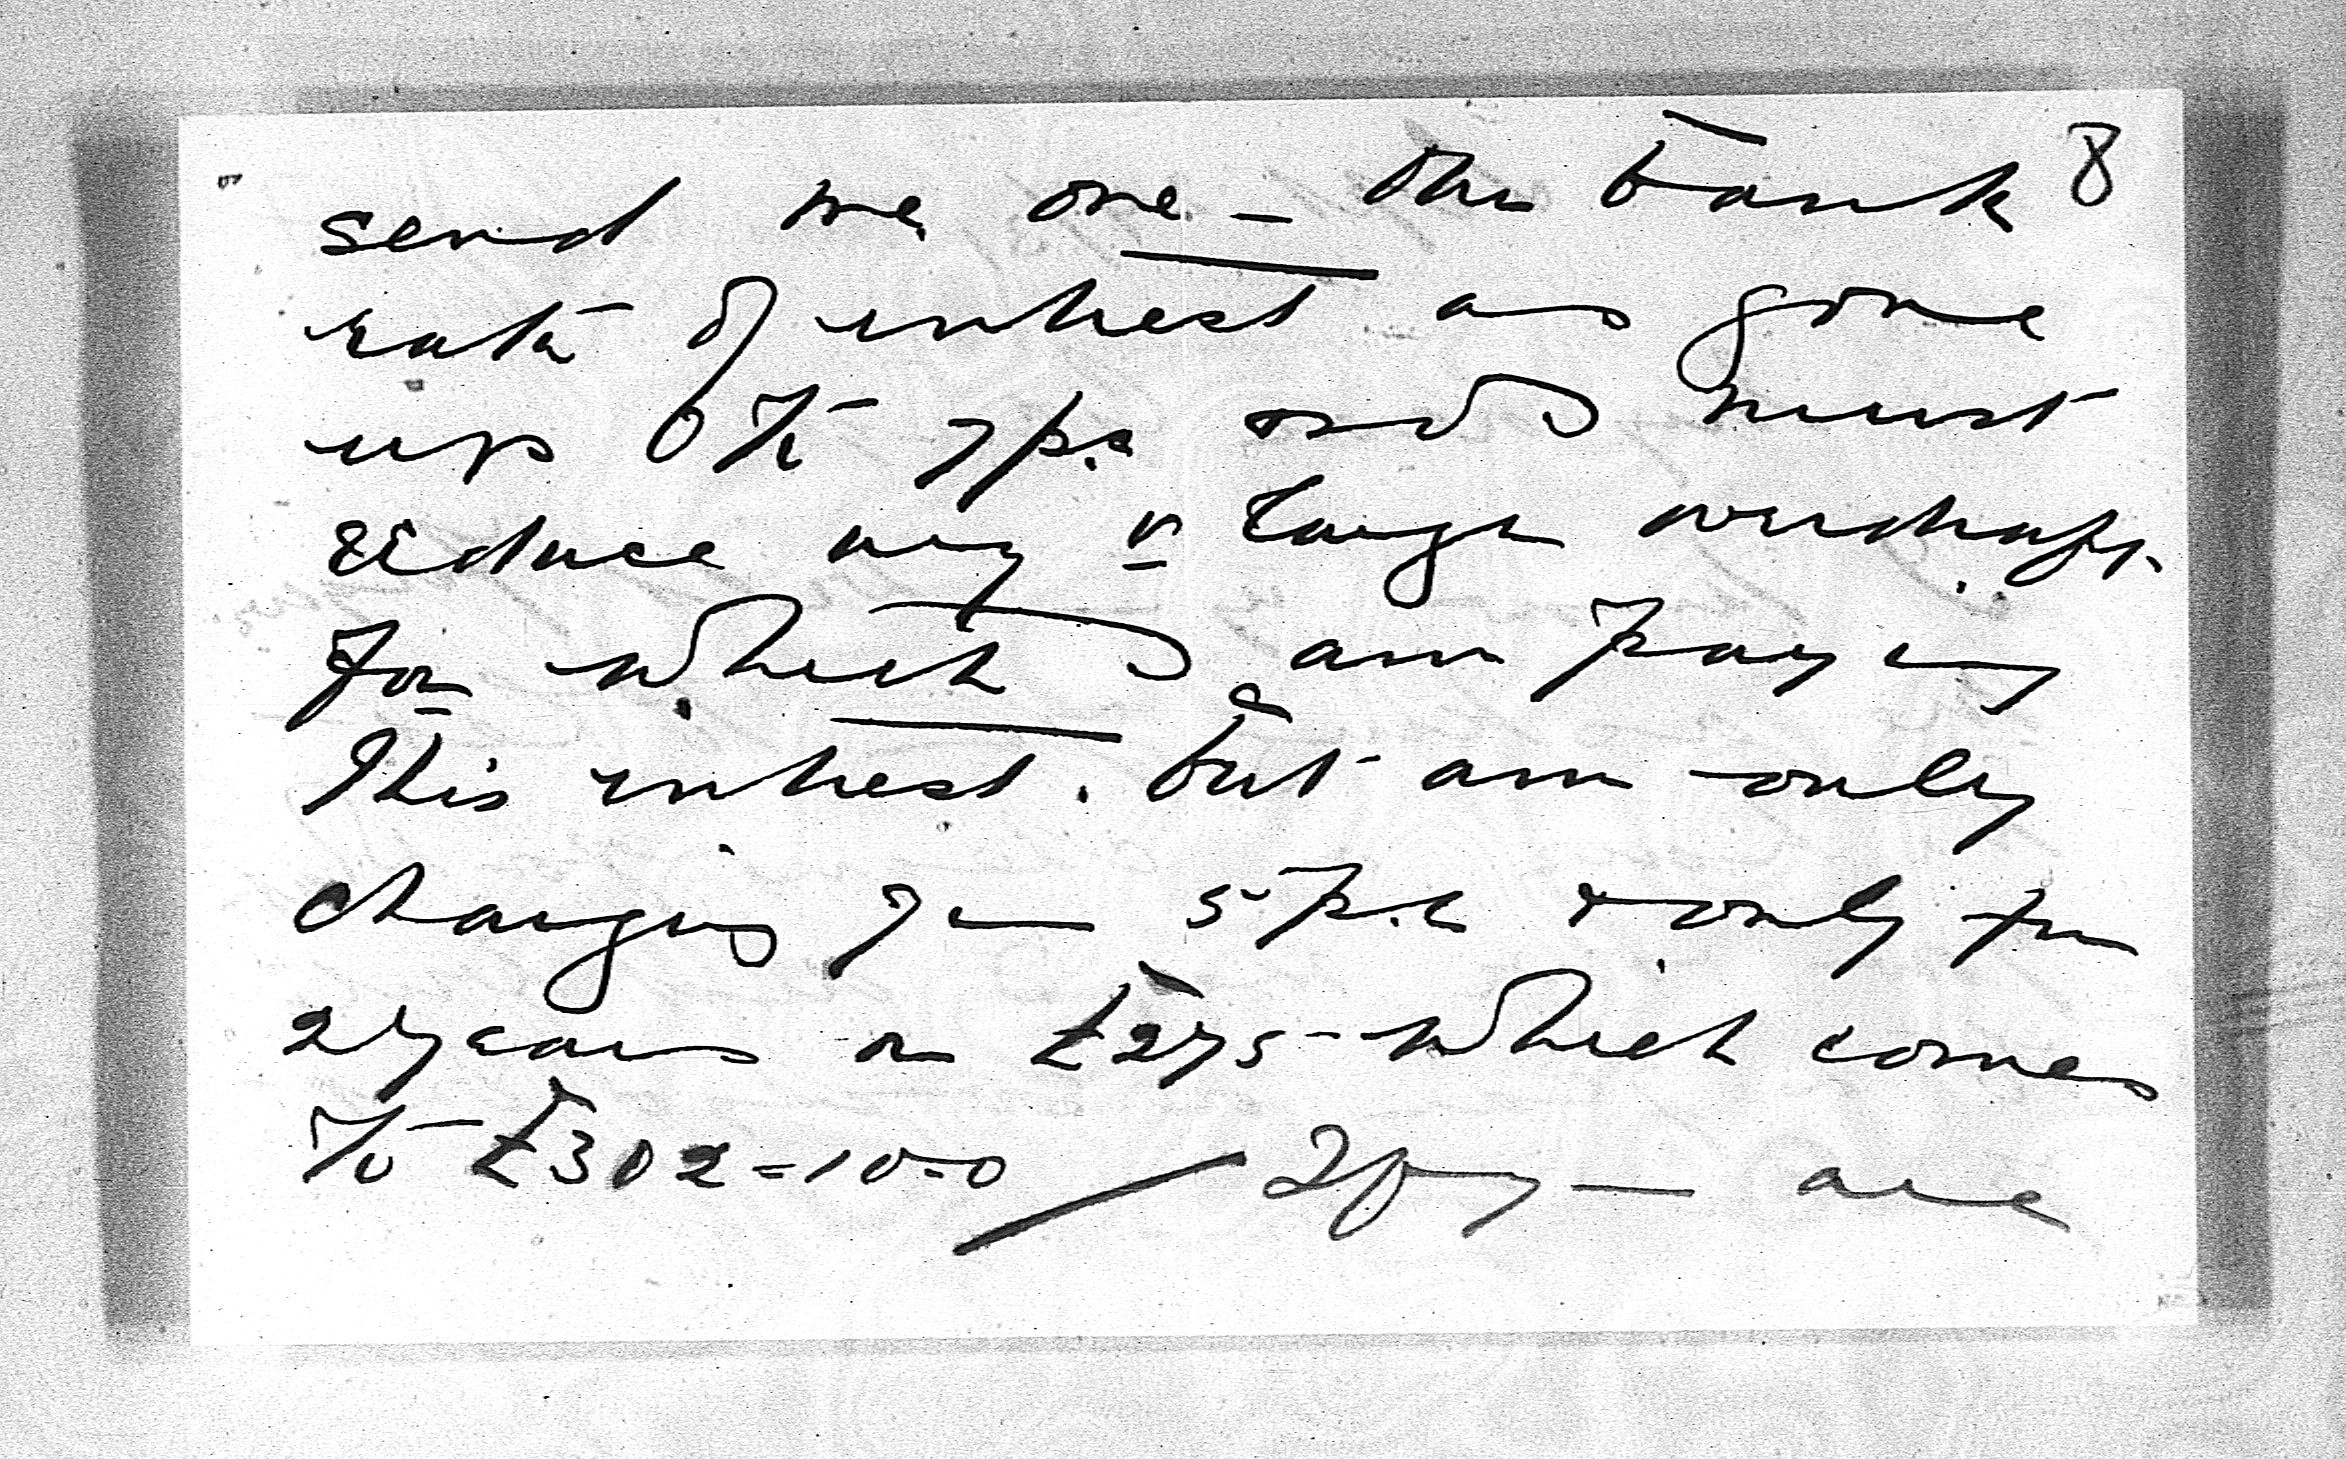 8
send me one – the bank
rate of interest as gone
up to 7 p.c and I must
reduce my v large overdraft
for which I am paying
this interest. but am only
charging you 5 p.c & only for
2 years on £275 – which comes
to £302 = 10 = 0 / If you are